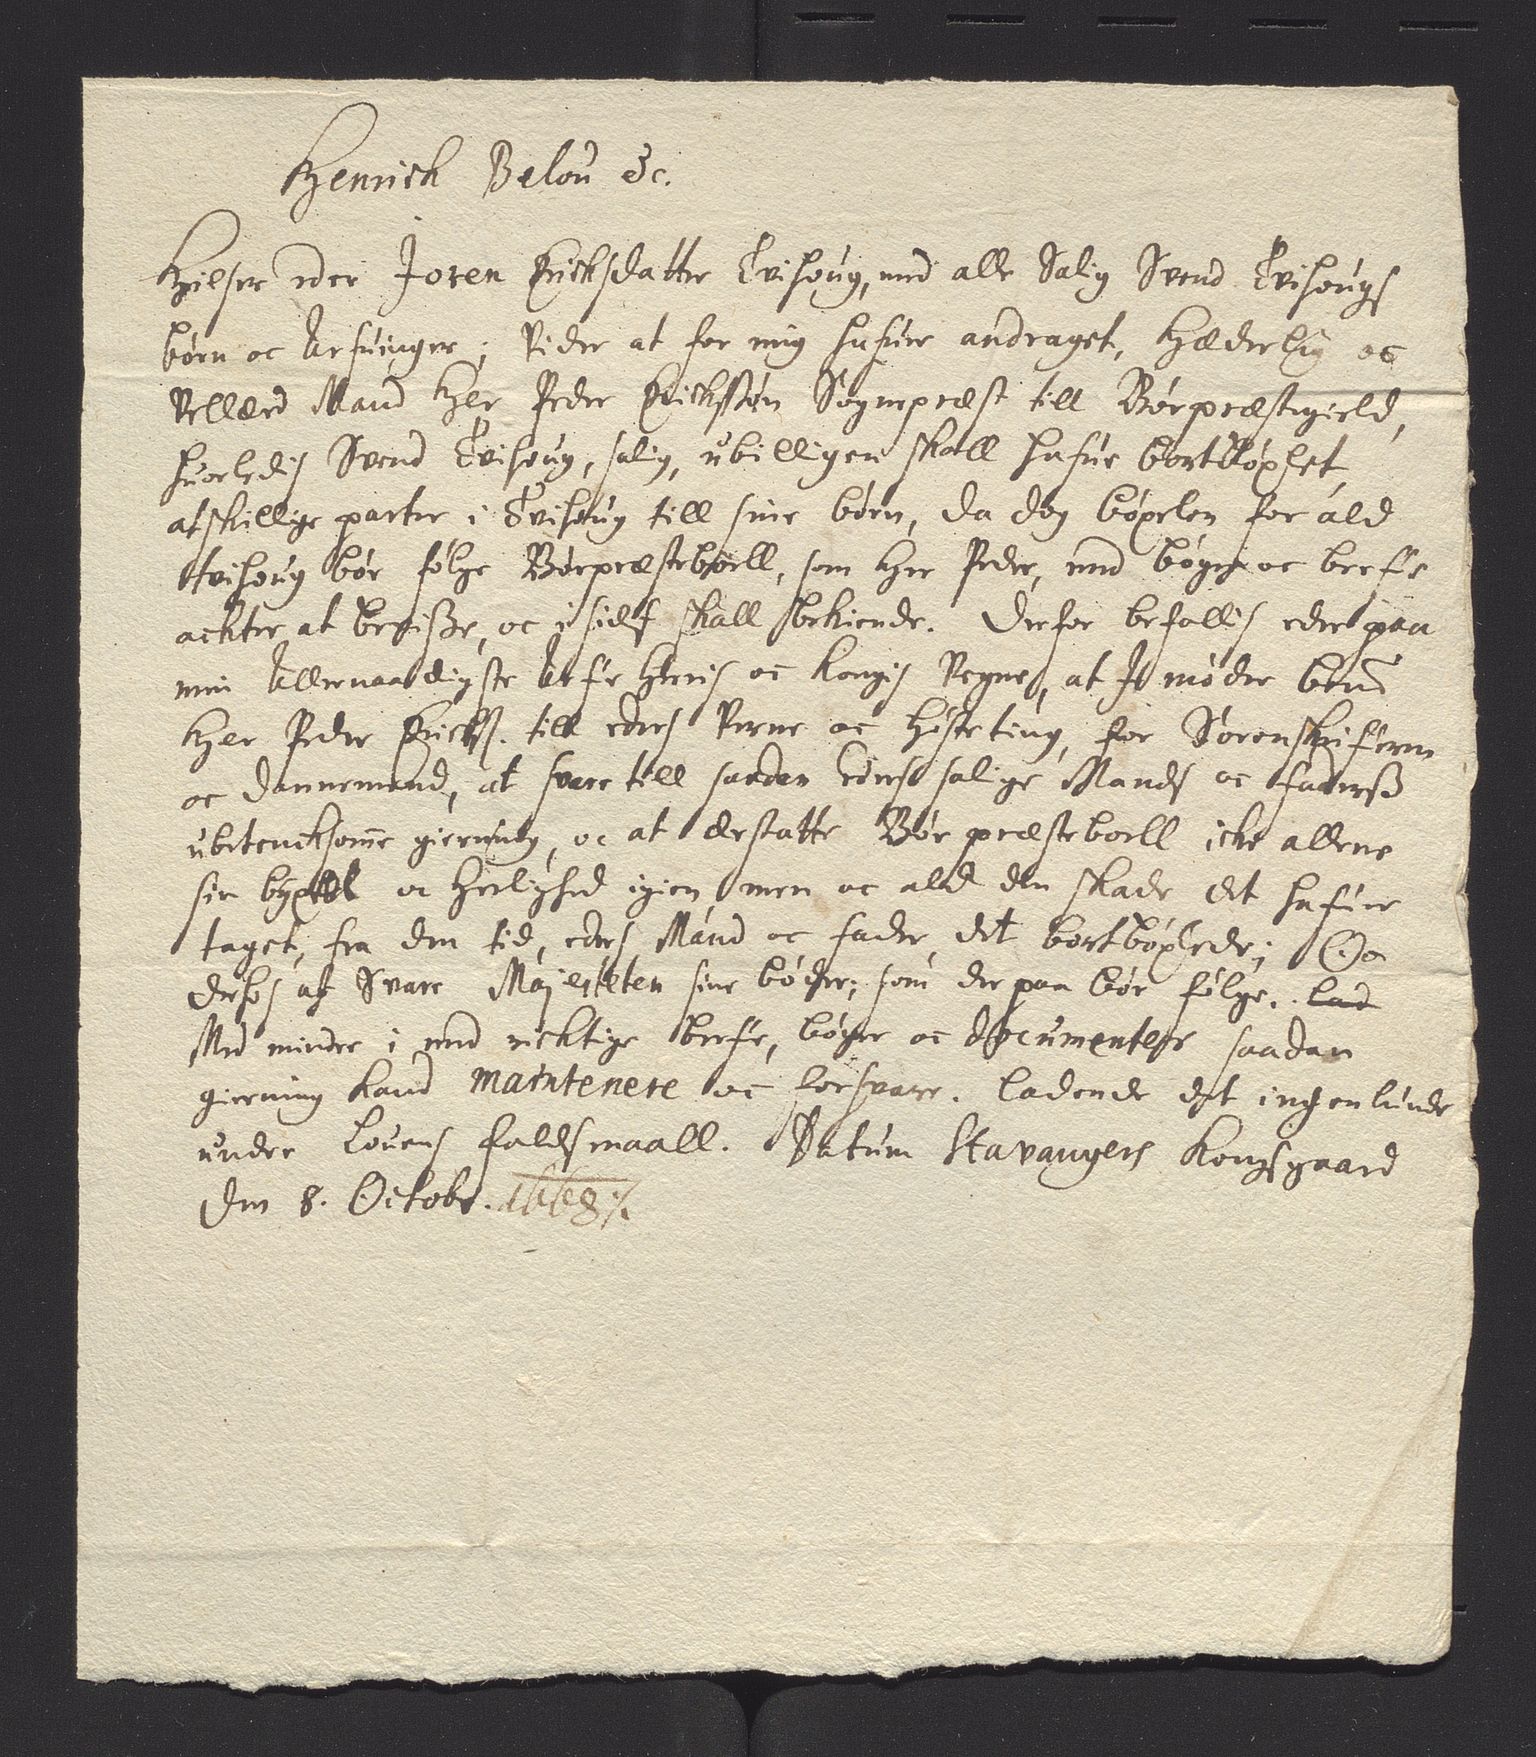 Henrich Belou &c.
Hilser eder Joren Erichsdatter Tvihoug, med alle Salig Svend Tvihougs
børn oc Arfuinger; Vider at for mig hafuer andraget, Hæderlig oc
Vellærd Mand Her Peder Erichssøn Sogneprest till Bøe præstegield,
huorledis Svend Tvihoug, salig, ubilligen skall hafue bortbøxlet,
atskillige parter i Tvihoug till sine børn, da dog bøxelen for ald
tvihoug bør følge Bøe præsteboell, som Her Peder, med bøger oc brefve
achter at beviße, oc i sielf skall bekiende. Derfor befallis eder paa
min Allernaadigste Arfve Herris oc Kongis Vegne, at I møder bemᵗᵉ
Her Peder Erichs. till eders Verne oc Høsteting, for Sorenskrifveren
oc dannemend, at svare till saadan eders salige Mands oc faders
ubetencksomme gierning, oc at erstatte Bøe præsteboell icke allene
sin bøxell oc Herlighed igien, men oc ald den skade det hafuer
taget, fra den tid, eders Mand oc fader det bortbøxlede; Oc
derhos at Svare Majesteten sine bøder; som der paa bør følge. lad
Med mindre i med richtige brefve, bøger oc documenter saadan
gierning kand maintenere oc forsvare. ladende det ingenlunde
under Lovens faldsmaall. Datum Stavangers Kongsgaard
den 8. Octobr. 1668 ./.